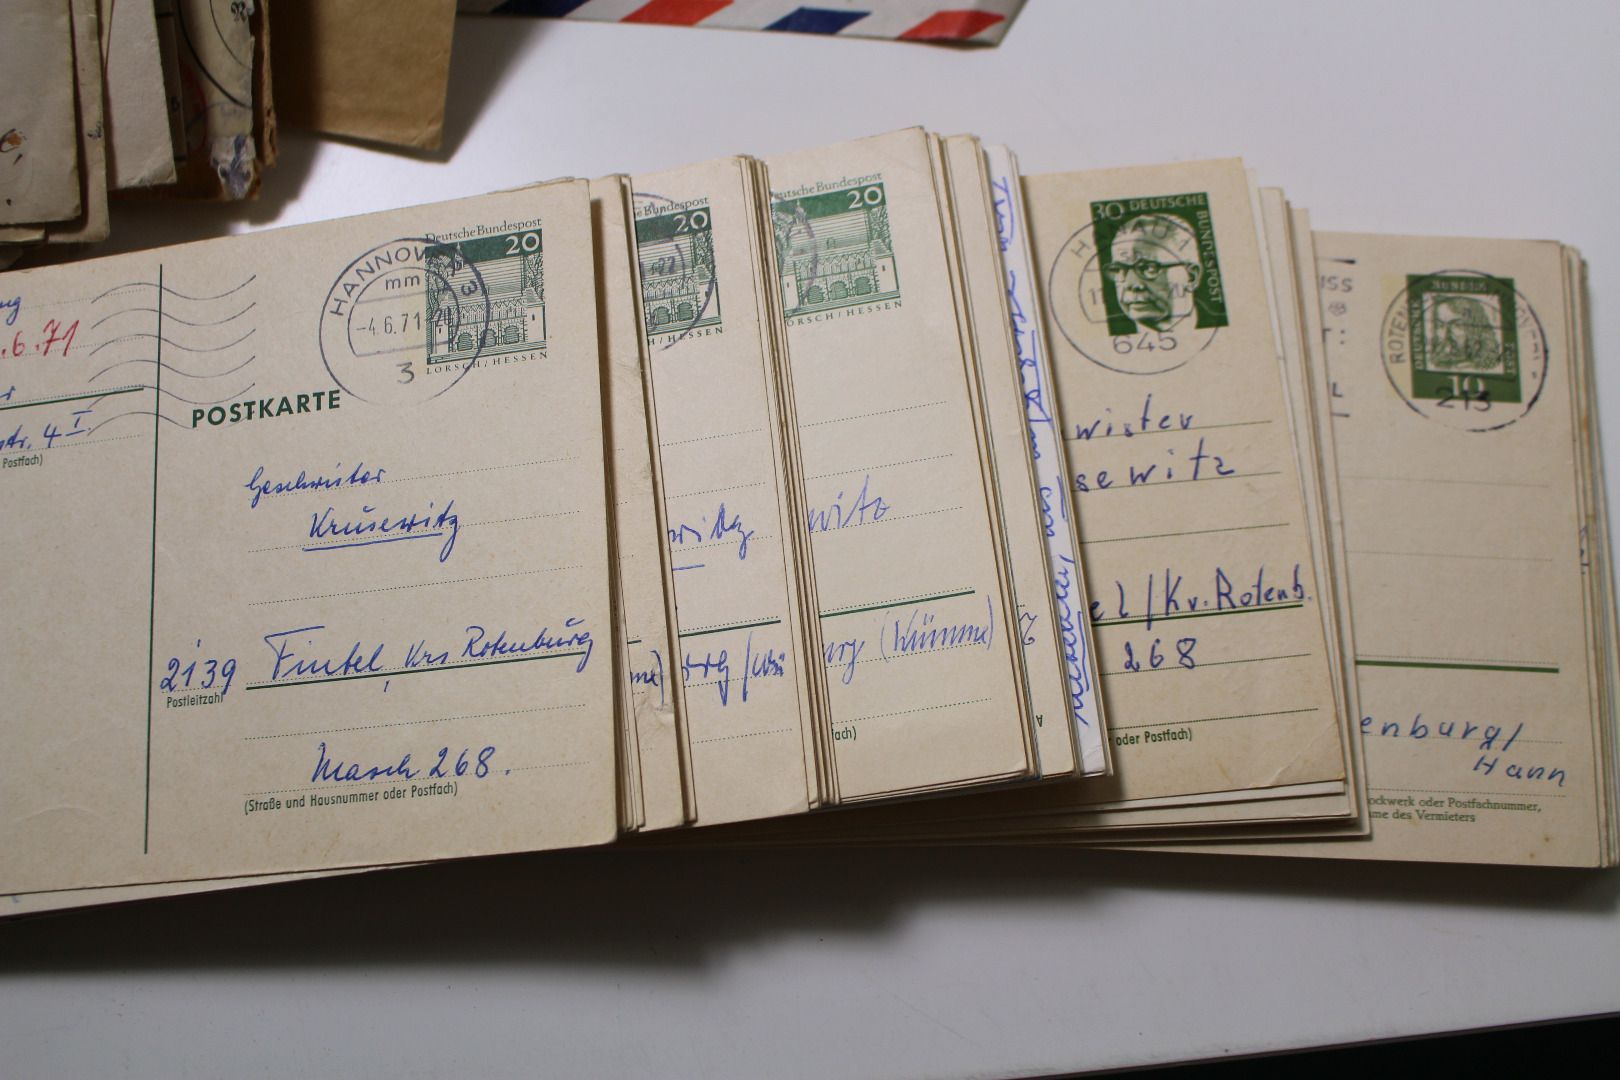 Deutsche Bundespost
20
HANNOVER 3
mm
-4.6.71-20
3
LORSCH/HESSEN
.6.71
str. 4 I.
Postfach)
POSTKARTE
Geschwister
Krusewitz
2139 Fintel, Krs Rotenburg
Postleitzahl
Masch 268.
(Straße und Hausnummer oder Postfach)
Bundespost
20
H/HESSEN
witz
Deutsche Bundespost
20
LORSCH/HESSEN
witz
urg (Wümme)
ach)
30 DEUTSCHE
BUNDESPOST
HANAU 1
645
wister
sewitz
el/Kr. Rotenb.
268
oder Postfach)
10
213
enburg/
Hann
ockwerk oder Postfachnummer,
me des Vermieters